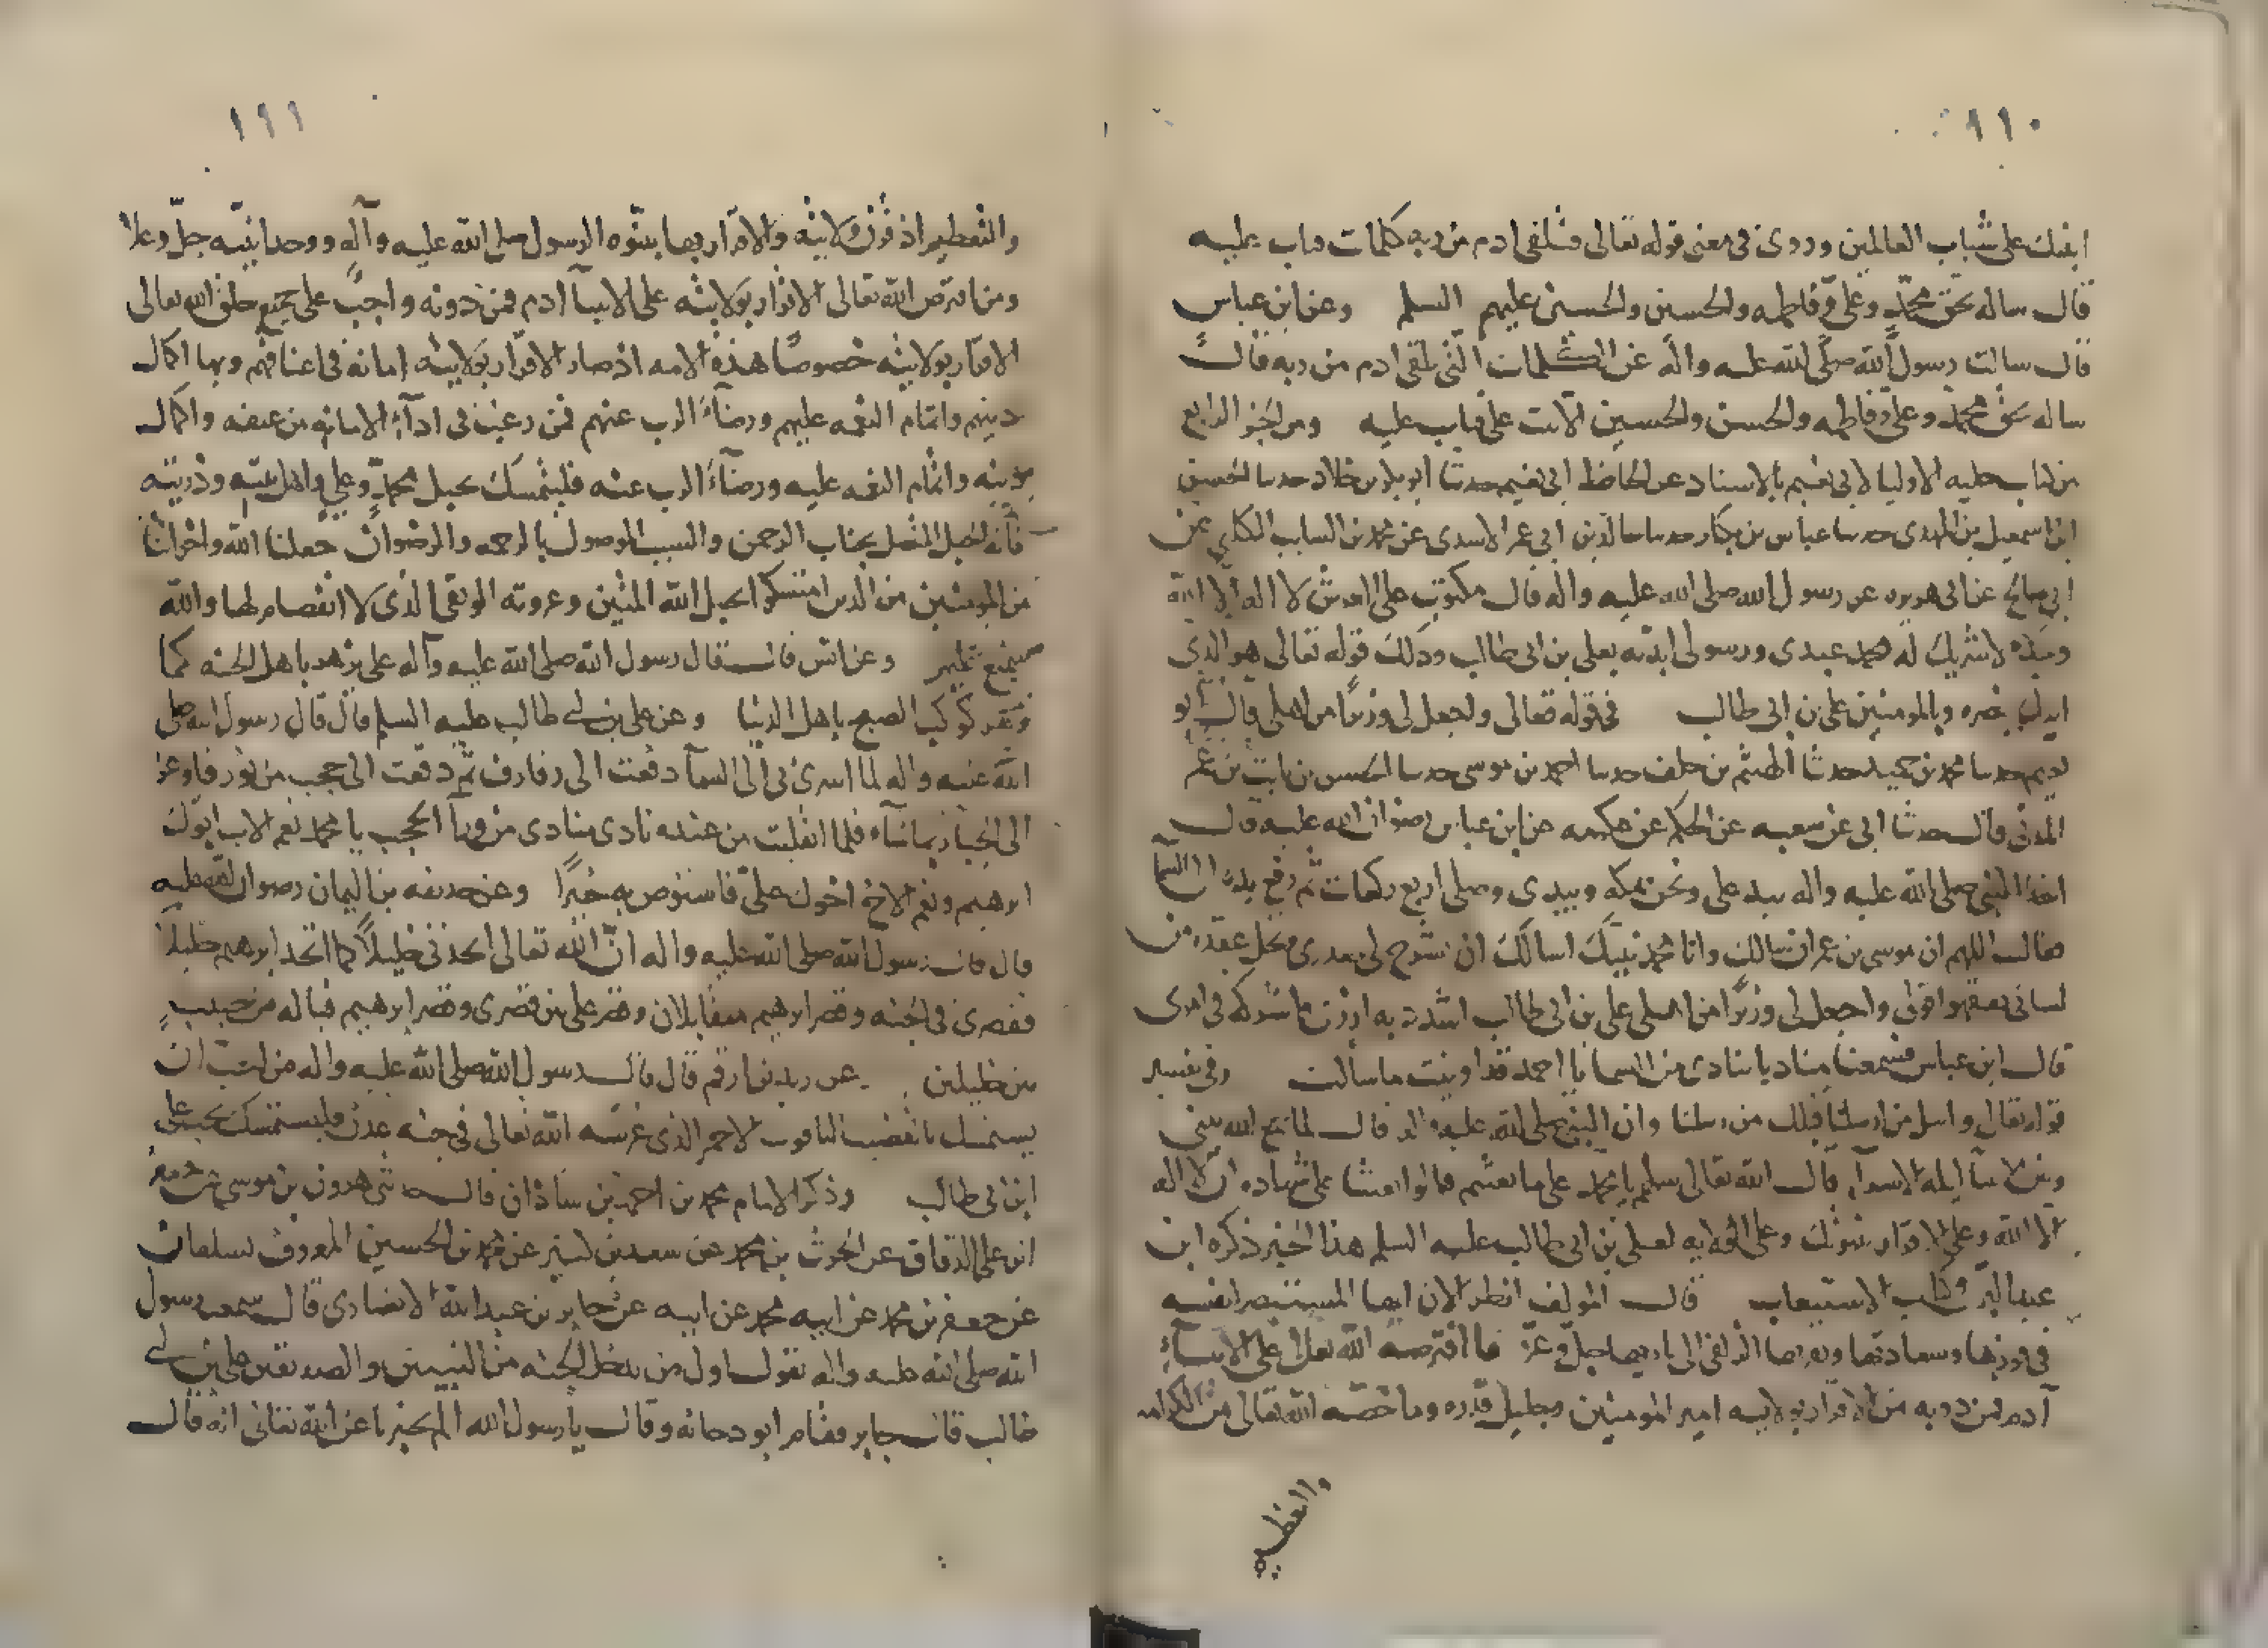 ١١٠
ابنك على شباب العالمين وروى فى معنى قوله تعالى فتلقى ادم من ربه كلمات فتاب عليه
قال ساله بحق محمد وعلى وفاطمه والحسين والحسن عليهم السلم وعن ابن عباس
قال سالت رسول الله صلى الله عليه واله عن الكلمات التى تلقى ادم من ربه قال
ساله بحق محمد وعلى وفاطمه والحسن والحسين الا تبت على فتاب عليه ومن الجز الرابع
من كتاب حليه الاوليا لابى نعيم بالاسناد عن الحافظ ابى نعيم حدثنا ابو بكر بن خلاد حدثنا الحسين
ابن اسمعيل بن المهدى حدثنا عباس بن بكار حدثنا خالد بن ابى عمر الاسدى عن محمد بن السايب الكلبى عن
ابى صالح عن ابى هريره عن رسول الله صلى الله عليه واله قال مكتوب على العرش لا اله الا الله
وحده لا شريك له محمد عبدى ورسولى ايدته بعلى بن ابى طالب وذلك قوله تعالى هو الذى
ايدك بنصره وبالمومنين على بن ابى طالب فى قوله تعالى واجعل لى وزيرا من اهلى قال ابو
نعيم حدثنا محمد بن حميد حدثنا الهيثم بن خلف حدثنا احمد بن موسى حدثنا الحسين بن ثابت بن عم
المدنى قال حدثنا ابى عن شعبه عن الحكم عن عكرمه عن ابن عباس رضوان الله عليه قال
اخذ النبى صلى الله عليه واله بيد على ونحن بمكه وبيدى وصلى اربع ركعات ثم رفع يده الى السما
فقال اللهم ان موسى بن عمران سالك وانا محمد نبيك اسالك ان تشرح لى صدرى وتحل عقدة من
لسانى يفقهوا قولى واجعل لى وزيرا من اهلى على بن ابى طالب اشدد به ازرى واشركه فى امرى
قال ابن عباس فسمعنا مناديا ينادى من السما يا احمد قد اوتيت ما سالت وفى تفسير
قوله تعالى واسل من ارسلنا قبلك من رسلنا وان النبى صلى الله عليه واله قال لما جمع الله بينى
وبين الانبيا ليلة الاسرآ قال الله تعالى سلهم يا محمد على ما بعثتم قالوا بعثنا على شهاده ان لا اله
الا الله وعلى الاقرار بنبوتك وعلى الولايه لعلى بن ابى طالب عليه السلم هذا الخبر ذكره ابن
عبد البر فى كتاب الاستيعاب قال المولف انظر الان ايها المستبصر لنفسه
فى فوزها وسعادتها وتقربها الزلفى الى باريها جل وعز ما افترضه الله تعالى على الانبيآء
آدم فمن دونه من الاقرار بولايه امير المومنين وجليل قدره وما خصه الله تعالى من الكرامه
والتعظيم
١١١
والتعظيم اذ قرن ولايته والاقرار بها بنبوه الرسول صلى الله عليه وآله ووحدانيته جل وعلا
ومن افترض الله تعالى الاقرار بولايته على الانبيآ آدم فمن دونه واجب على جميع خلق الله تعالى
الاقرار بولايته خصوصا هذه الامه اذ صار الاقرار بولايته امانة فى اعناقهم وبها اكمال
دينهم واتمام النعمه عليهم ورضآء الرب عنهم فمن رغب فى ادآء الامانه من عنقه واكمال
دينه واتمام النعمه عليه ورضآء الرب عنه فليتمسك بحبل محمد وعلى واهل بيته وذريته
فانه الحبل المتصل بجناب الرحمن والسبب الموصول بالرحمه والرضوان جعلنا الله واخواننا
من المومنين من الذين امتسكوا بحبل الله المتين وعروته الوثقى الذى لا انفصام لها والله
سميع عليم وعن انس قال قال رسول الله صلى الله عليه وآله على يزهر باهل الجنه كما
يزهر كوكب الصبح باهل الدنيا وعن على بن ابى طالب عليه السلم قال قال رسول الله صلى
الله عليه واله لما اسرى بى الى السمآ دفعت الى رفارف ثم دفعت الى حجب من نور فاوعز
الى الجبار بما شآء فلما انقلبت من عنده نادى منادى من ورآ الحجب يا محمد نعم الاب ابوك
ابرهيم ونعم الاخ اخوك على فاستوص به خيرا وعن حذيفه بن اليمان رضوان الله عليه
قال قال رسول الله صلى الله عليه واله ان الله تعالى اتخذنى خليلا كما اتخذ ابرهيم خليلا
فقصرى فى الجنه وقصر ابرهيم متقابلان وقصر على بين قصرى وقصر ابرهيم فياله من حبيب
بين خليلين عن زيد بن ارقم قال قال رسول الله صلى الله عليه واله من احب ان
يستمسك بالقضيب الياقوت الاحمر الذى غرسه الله تعالى فى جنه عدن فليستمسك بحب على
ابن ابى طالب وذكر الامام محمد بن احمد بن شاذان قال حدثنى هرون بن موسى عن جعفر
ابن على الدقاق عن الحرث بن محمد عن سعد بن كثير عن محمد بن الحسين المعروف بسلقان
عن جعفر بن محمد عن ابيه محمد عن ابيه عن جابر بن عبد الله الانصارى قال سمعت رسول
الله صلى الله عليه واله يقول اول من يدخل الجنه من النبيين والصديقين على بن ابى
طالب قال جابر فقام ابو دجانه وقال يا رسول الله الم تخبرنا عن الله تعالى انه قال